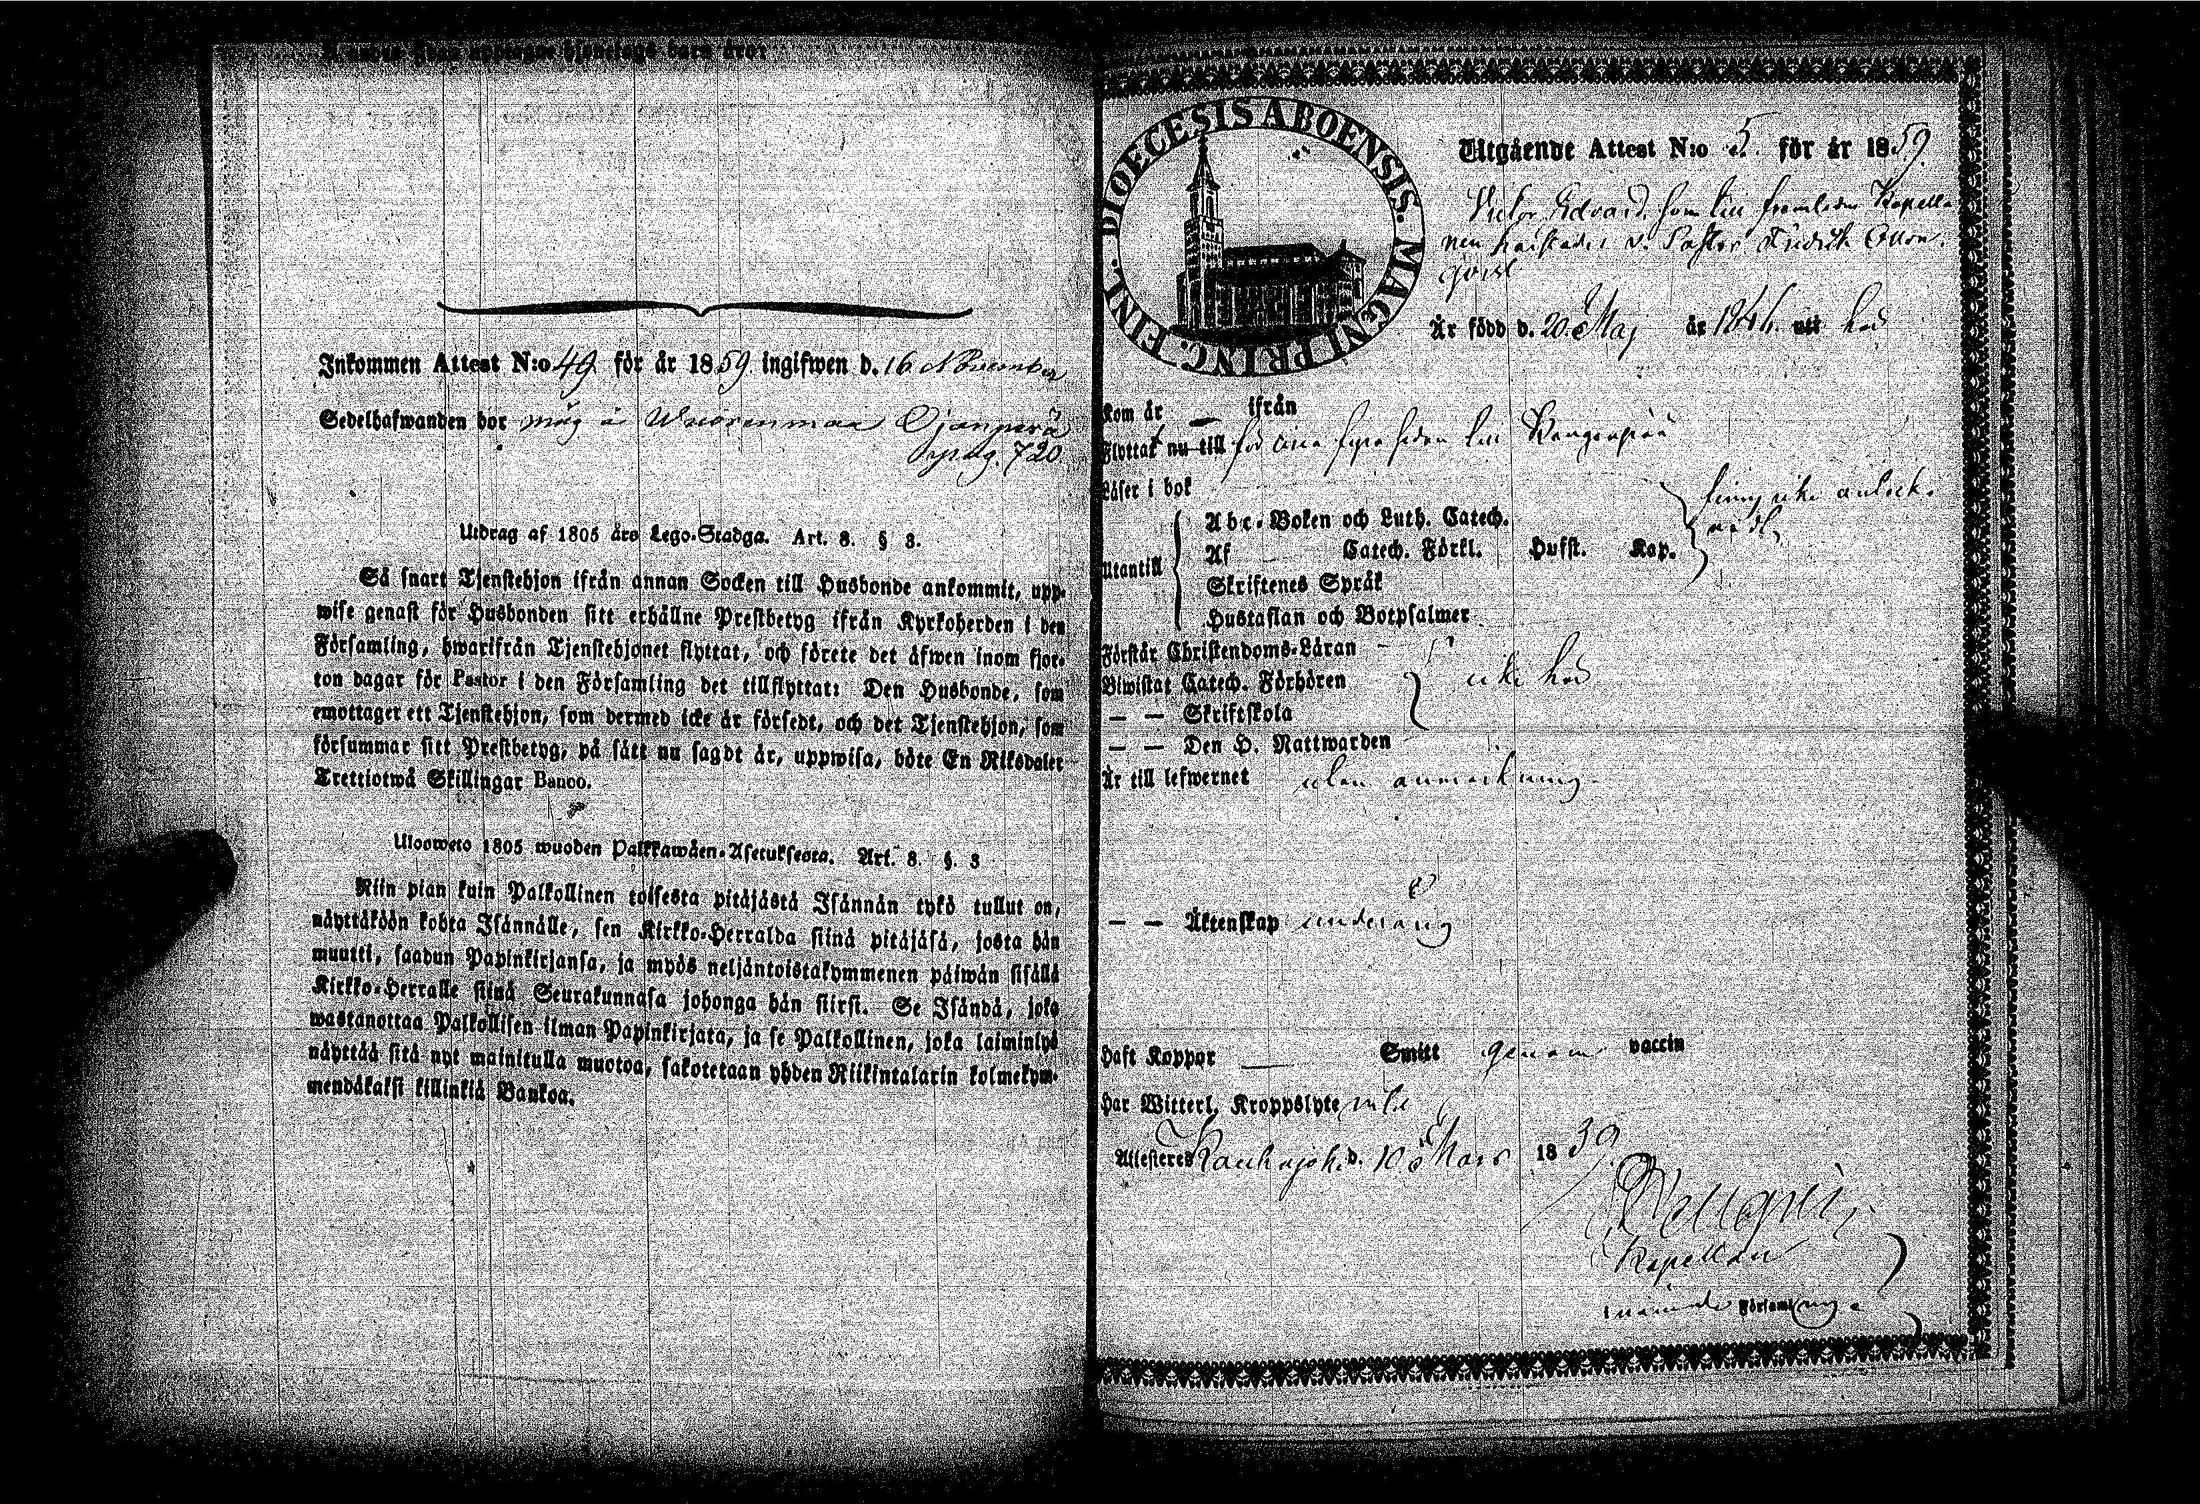 barn äro:
Inkommen Attest N:o 49 för år 1859 ingifwen d. 16 November
Sedelhafwanden bor måg å Wuorenmaa Ojanperä
pag. 720
Utdrag af 1805 års Lego-Stadga. Art. 8. § 3.
Så snart Tjenstehjon ifrån annan Socken till Husbonde ankommit, upp-
wise genast för Husbonden sitt erhållne Prestbetyg ifrån Kyrkoherden i den
Församling, hwarifrån Tjenstehjonet flyttat, och förete det äfwen inom fjor-
ton dagar för Pastor i den Församling det tillflyttat: Den Husbonde, som
emottager ett Tjenstehjon, som dermed icke är försedt, och det Tjenstehjon, som
försummar sitt Prestbetyg, på sätt nu sagdt är, uppwisa, böte En Riksdaler
Trettiotwå Skillingar Banco.
Ulosweto 1805 wuoden Palkkawäen-Asetuksesta. Art. 8. §. 3
Niin pian kuin Palkollinen toisesta pitäjästä Isännän tykö tullut on,
näyttäköön kohta Isännälle, sen Kirkko-Herralda siinä pitäjäsä, josta hän
muutti, saadun Papinkirjansa, ja myös neljäntoistakymmenen päiwän sisällä
Kirkko-Herralle siinä Seurakunnasa johonga hän siirsi. Se Isändä, joka
wastanottaa Palkollisen ilman Papinkirjata, ja se Palkollinen, joka laiminlyö
näyttää sitä nyt mainitulla muotoa, sakotetaan yhden Riikintalarin kolmekym-
mendäkaksi killinkiä Bankoa.
DIOECESIS ABOENSIS. MAGNI PRINC. FINL.
Utgående Attest N:o 5. för år 1859.
Victor Edvard, son till framledne Kapella
nen v. Pastor Fredrik
qvist
Är född d. 20 Maj år 1846. uti
Kom år — ifrån
Flyttat nu till för sedan till Kangaspää
Läser i bok
Utantill
Abc-Boken och Luth. Catech.
Af Catech. Förkl. Hufst. Kap.
Skriftenes Språk
Hustaflan och Botpsalmer
finns icke anteck-
nadt
Förstår Christendoms-Läran
Biwistat Catech. Förhören icke
— — Skriftskola
— — Den H. Nattwarden
Är till lefwernet utan anmärkning
— — Äktenskap underårig
Haft Koppor — Smitt genom vaccin
Har Witterl. Kroppslyte
Attesteres Kauhajoki d. 10 Mars 1859.
Kapellan
Församl